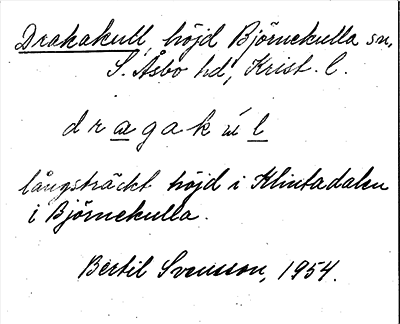 Drakakull, höjd Björnekulla sn,
S. Åsbo hd, Krist. l.
dragakul
långsträckt höjd i Klintadalen
i Björnekulla.
Bertil Svensson, 1954.